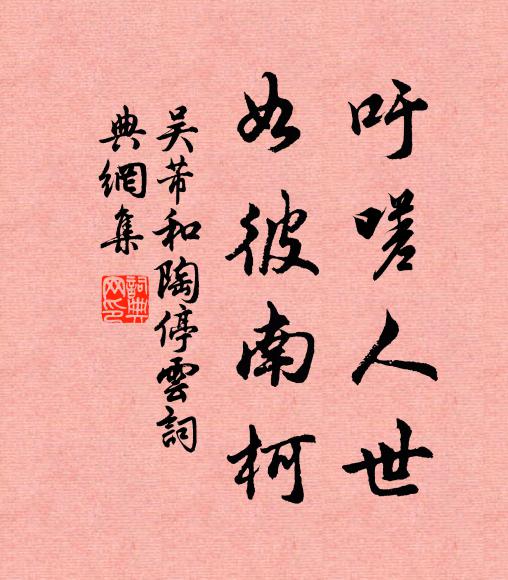 吁嗟人世
如彼南柯
吳芾和陶停雲詞
典網集
詞典
网印